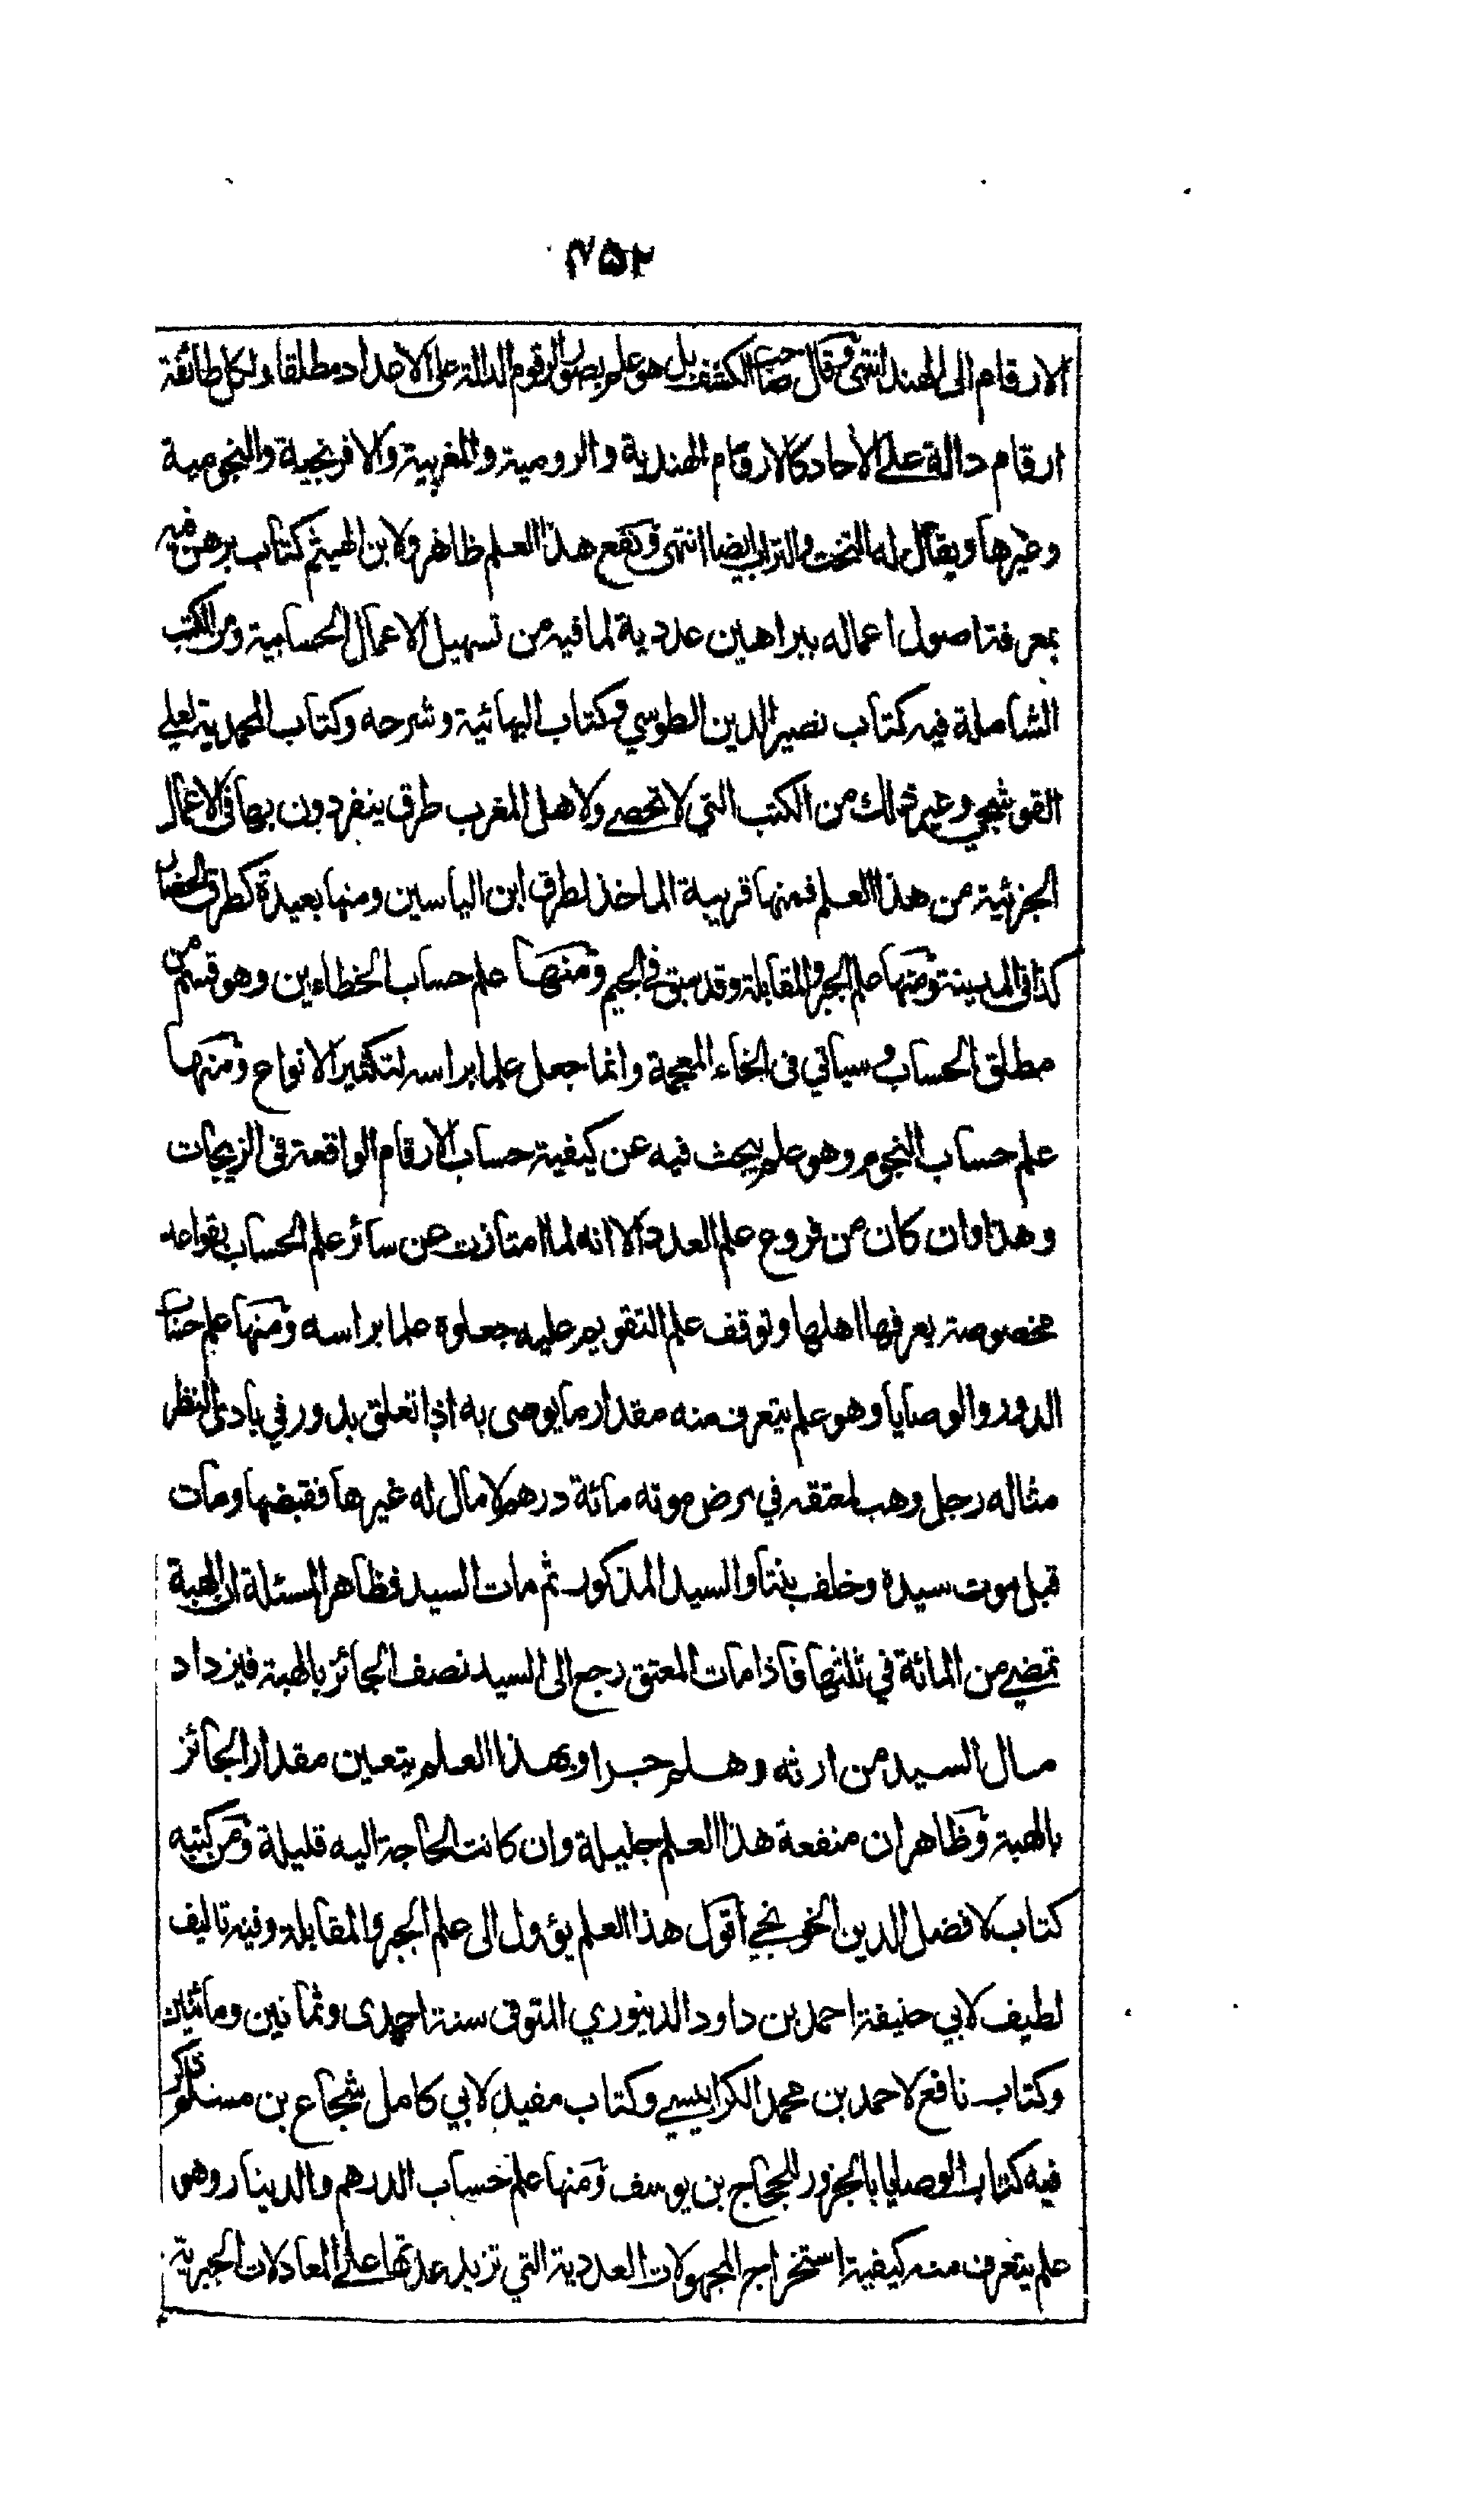 ٤٥٢
الارقام الى الهند انتهى وقال صاحب الكشف بل هو علم بصور الرقوم الدالة على الاعداد مطلقا ولكل طائفة
ارقام دالة على الاحاد كالارقام الهندية والرومية والمغربية والافرنجية والنجومية
وغيرها ويقال له التخت والتراب ايضا انتهى ونفع هذا العلم ظاهر ولابن الهيثم كتاب برهن فيه
بمعرفة اصول اعماله ببراهين عددية لما فيه من تسهيل الاعمال الحسابية ومن الكتب
الشاملة فيه كتاب نصير الدين الطوسي وكتاب البهائية وشرحه وكتاب المحمدية لعلي
القوشجي وغير ذلك من الكتب التي لا تحصے ولاهل المغرب طرق ينفردون بها فى الاعمال
الجزئية من هذا العلم فمنها قريبة الماخذ لطرق ابن الياسين ومنها بعيدة كطرق الحصار
كذا فى المدينة ومنها علم الجبر والمقابلة وقد سبق في الجيم ومنها علم حساب الخطاءين وهو قسم من
مطلق الحساب وسياتي فى الخاء المعجمة وانما جعل علما براسه لتكثير الانواع ومنها
علم حساب النجوم وهو علم يبحث فيه عن كيفية حساب الارقام الواقعة فى الزيجات
وهذا وان كان من فروع علم العدد الا انه لما امتازت عن سائر علم الحساب بقواعد
مخصوصة يعرفها اهلها وتوقف علم التقويم عليه جعلوه علما براسه ومنها علم حساب
الدور والوصايا وهو علم يتعرف منه مقدار ما يوصى به اذا تعلق بدور في بادئ النظر
مثاله رجل وهب لمعتقه في مرض موته مائة درهم لا مال له غيرها فقبضها ومات
قبل موت سيده وخلف بنتا والسيد المذكور ثم مات السيد فظاهر المسئلة ان الهبة
تمضے من المائة في ثلثها فاذا مات المعتق رجع الى السيد نصف الجائز بالهبة فيزداد
مال السيد من ارثه وهلم جرا وبهذا العلم يتعين مقدار الجائز
بالهبة وظاهر ان منفعة هذا العلم جليلة وان كانت الحاجة اليه قليلة ومن كتبه
كتاب لافضل الدين الخونجي اقول هذا العلم يؤول الى علم الجبر والمقابلة وفيه تاليف
لطيف لابي حنيفة احمد بن داود الدينوري المتوفى سنة احدى وثمانين ومائتين
وكتاب نافع لاحمد بن محمد الكرابيسے وكتاب مفيد لابي كامل شجاع بن مسلم ذكر
فيه كتاب الوصايا بالجزور للحجاج بن يوسف ومنها علم حساب الدرهم والدينار وهو
علم يتعرف منه كيفية استخراج المجهولات العددية التي تزيد عدتها على المعادلات الجبرية